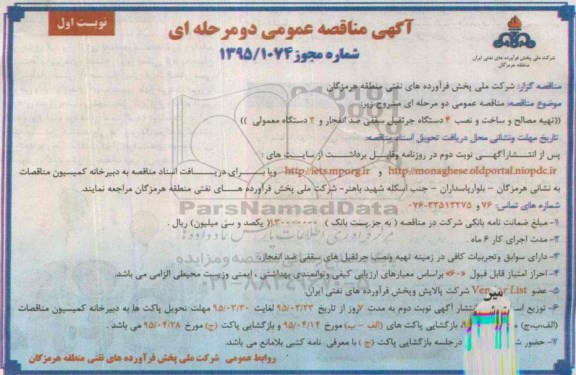 نوبت اول
آگهی مناقصه عمومی دو مرحله ای
شماره مجوز ۱۳۹۵/۱۰۷۴
شرکت ملی پخش فرآورده های نفتی ایران
منطقه هرمزگان
مناقصه گزار: شرکت ملی پخش فرآورده های نفتی منطقه هرمزگان
موضوع مناقصه: مناقصه عمومی دو مرحله ای مشروح زیر:
((تهیه مصالح و ساخت و نصب ۴ دستگاه جرثقیل سقفی ضد انفجار و ۲ دستگاه معمولی ))
تاریخ مهلت ونشانی محل دریافت تحویل اسناد مناقصه:
پس از انتشار آگهی نوبت دوم در روزنامه وقابل برداشت از سایت های :
http://monaghese.oldportal.niopdc.ir و http://iets.mporg.ir ویا برای دریافت اسناد مناقصه به دبیرخانه کمیسیون مناقصات
به نشانی هرمزگان – بلوارپاسداران – جنب اسکله شهید باهنر- شرکت ملی پخش فرآورده های نفتی منطقه هرمزگان مراجعه نمایند.
شماره های تماس: ۷۶ و ۳۳۵۱۳۲۷۵-۰۷۶
۱- مبلغ ضمانت نامه بانکی شرکت در مناقصه ( به جز پست بانک ) ۱۳۰۰۰۰۰۰۰( یکصد و سی میلیون) ریال .
۲- مدت اجرای کار ۶ ماه .
۳- دارای سوابق وتجربیات کافی در زمینه تهیه ونصب جرثقیل های سقفی ضد انفجار.
۴- احراز امتیاز قابل قبول ۶۰۶ براساس معیارهای ارزیابی کیفی و توانمندی بهداشتی ، ایمنی وزیست محیطی الزامی می باشد.
۵- عضو Vendor List شرکت پالایش وپخش فرآورده های نفتی ایران.
۶- توزیع اسناد انتشار آگهی نوبت دوم به مدت ۷روز از تاریخ ۹۵/۰۳/۲۳ لغایت ۹۵/۰۳/۳۰ مهلت تحویل پاکت ها به دبیرخانه کمیسیون مناقصات
(الف،ب،ج) بازگشایی پاکت های (الف – ب) مورخ ۹۵/۰۴/۱۴ و بازگشایی پاکت (ج) مورخ ۹۵/۰۴/۲۸ می باشد .
۷- حضور در جلسه بازگشایی پاکت (ج ) با معرفی نامه کتبی بلامانع می باشد.
روابط عمومی شرکت ملی پخش فرآورده های نفتی منطقه هرمزگان
ParsNamadData